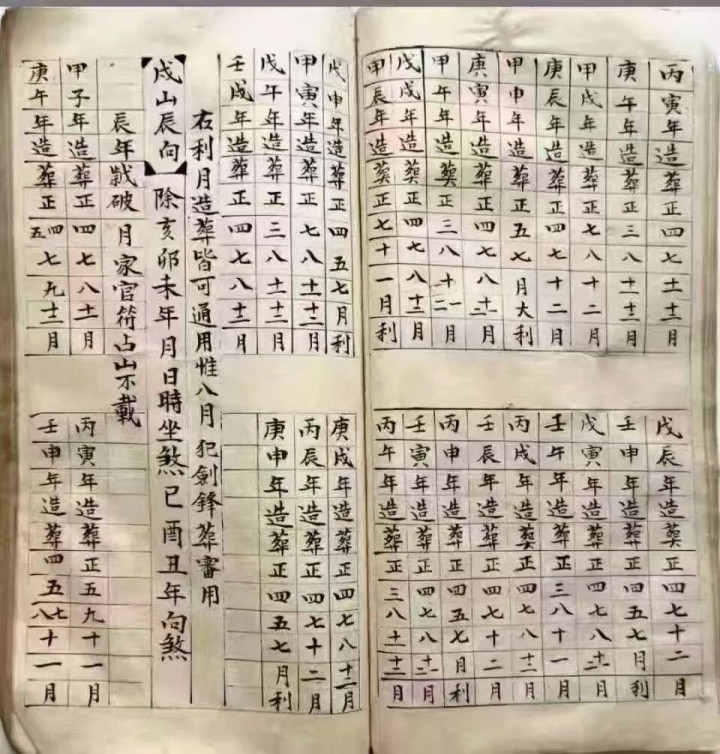 丙寅年造葬正四七十一十二月
庚午年造葬正三八十一十二月
甲戌年造葬正四七八十二月
庚辰年造葬正四七十二月
甲申年造葬正五七月大利
庚寅年造葬正四七八十一十二月
甲午年造葬正三八十十一十二月
戊戌年造葬正四七八十二月
甲辰年造葬正七十一月利
戊辰年造葬正四七十二月
壬申年造葬正四五七月利
戊寅年造葬正四七八十一十二月
壬午年造葬正三八十十一月
丙戌年造葬正四七八十一月
壬辰年造葬正四七十二月
丙申年造葬正四五七月利
壬寅年造葬正四七八十一十二月
丙午年造葬正三八十一十二月
戊申年造葬正四五七月利
甲寅年造葬正七八十一十二月
戊午年造葬正三八十一十二月
壬戌年造葬正四七八十二月
庚戌年造葬正四七八十二月
丙辰年造葬正四五七十二月
庚申年造葬正四五七月利
右利月造葬皆可通用惟八月犯劍鋒葬審用
戌山辰向 除亥卯未年月日時坐煞巳酉丑年向煞
辰年冲破月家官符占山不載
甲子年造葬正四七八十一月
庚午年造葬正四五七九十二月
丙寅年造葬正五九十一月
壬申年造葬四五七八十一月